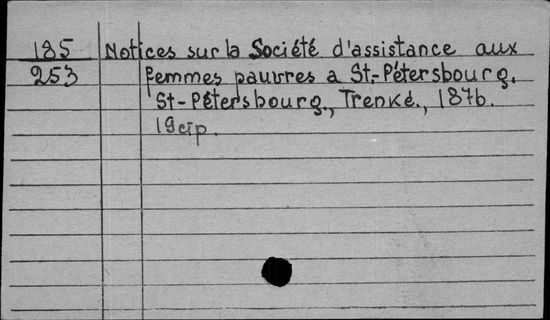 185 Notices sur la Société d'assistance aux
253 femmes pauvres a St.-Pétersbourg.
St-Pétersbourg., Trenké., 1876.
19 стр.